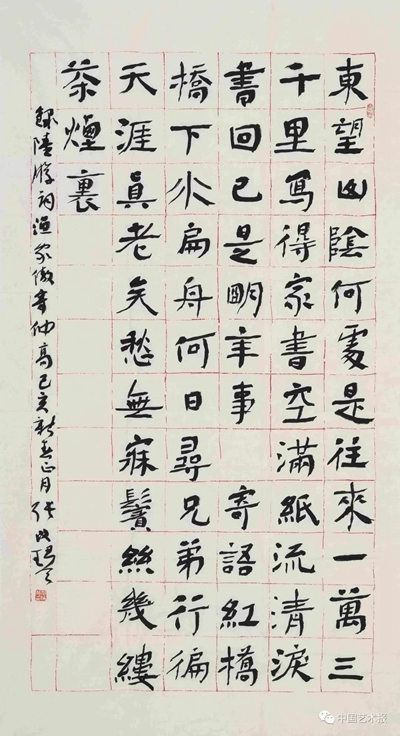 東望山陰何處是往來一萬三
千里寫得家書空滿紙流清淚
書回已是明年事 寄語紅橋
橋下水扁舟何日尋兄弟行徧
天涯真老矣愁無寐鬢絲幾縷
茶煙裏
錄陸游詞漁家傲寄仲高己亥新春正月張改琴
中国艺术报